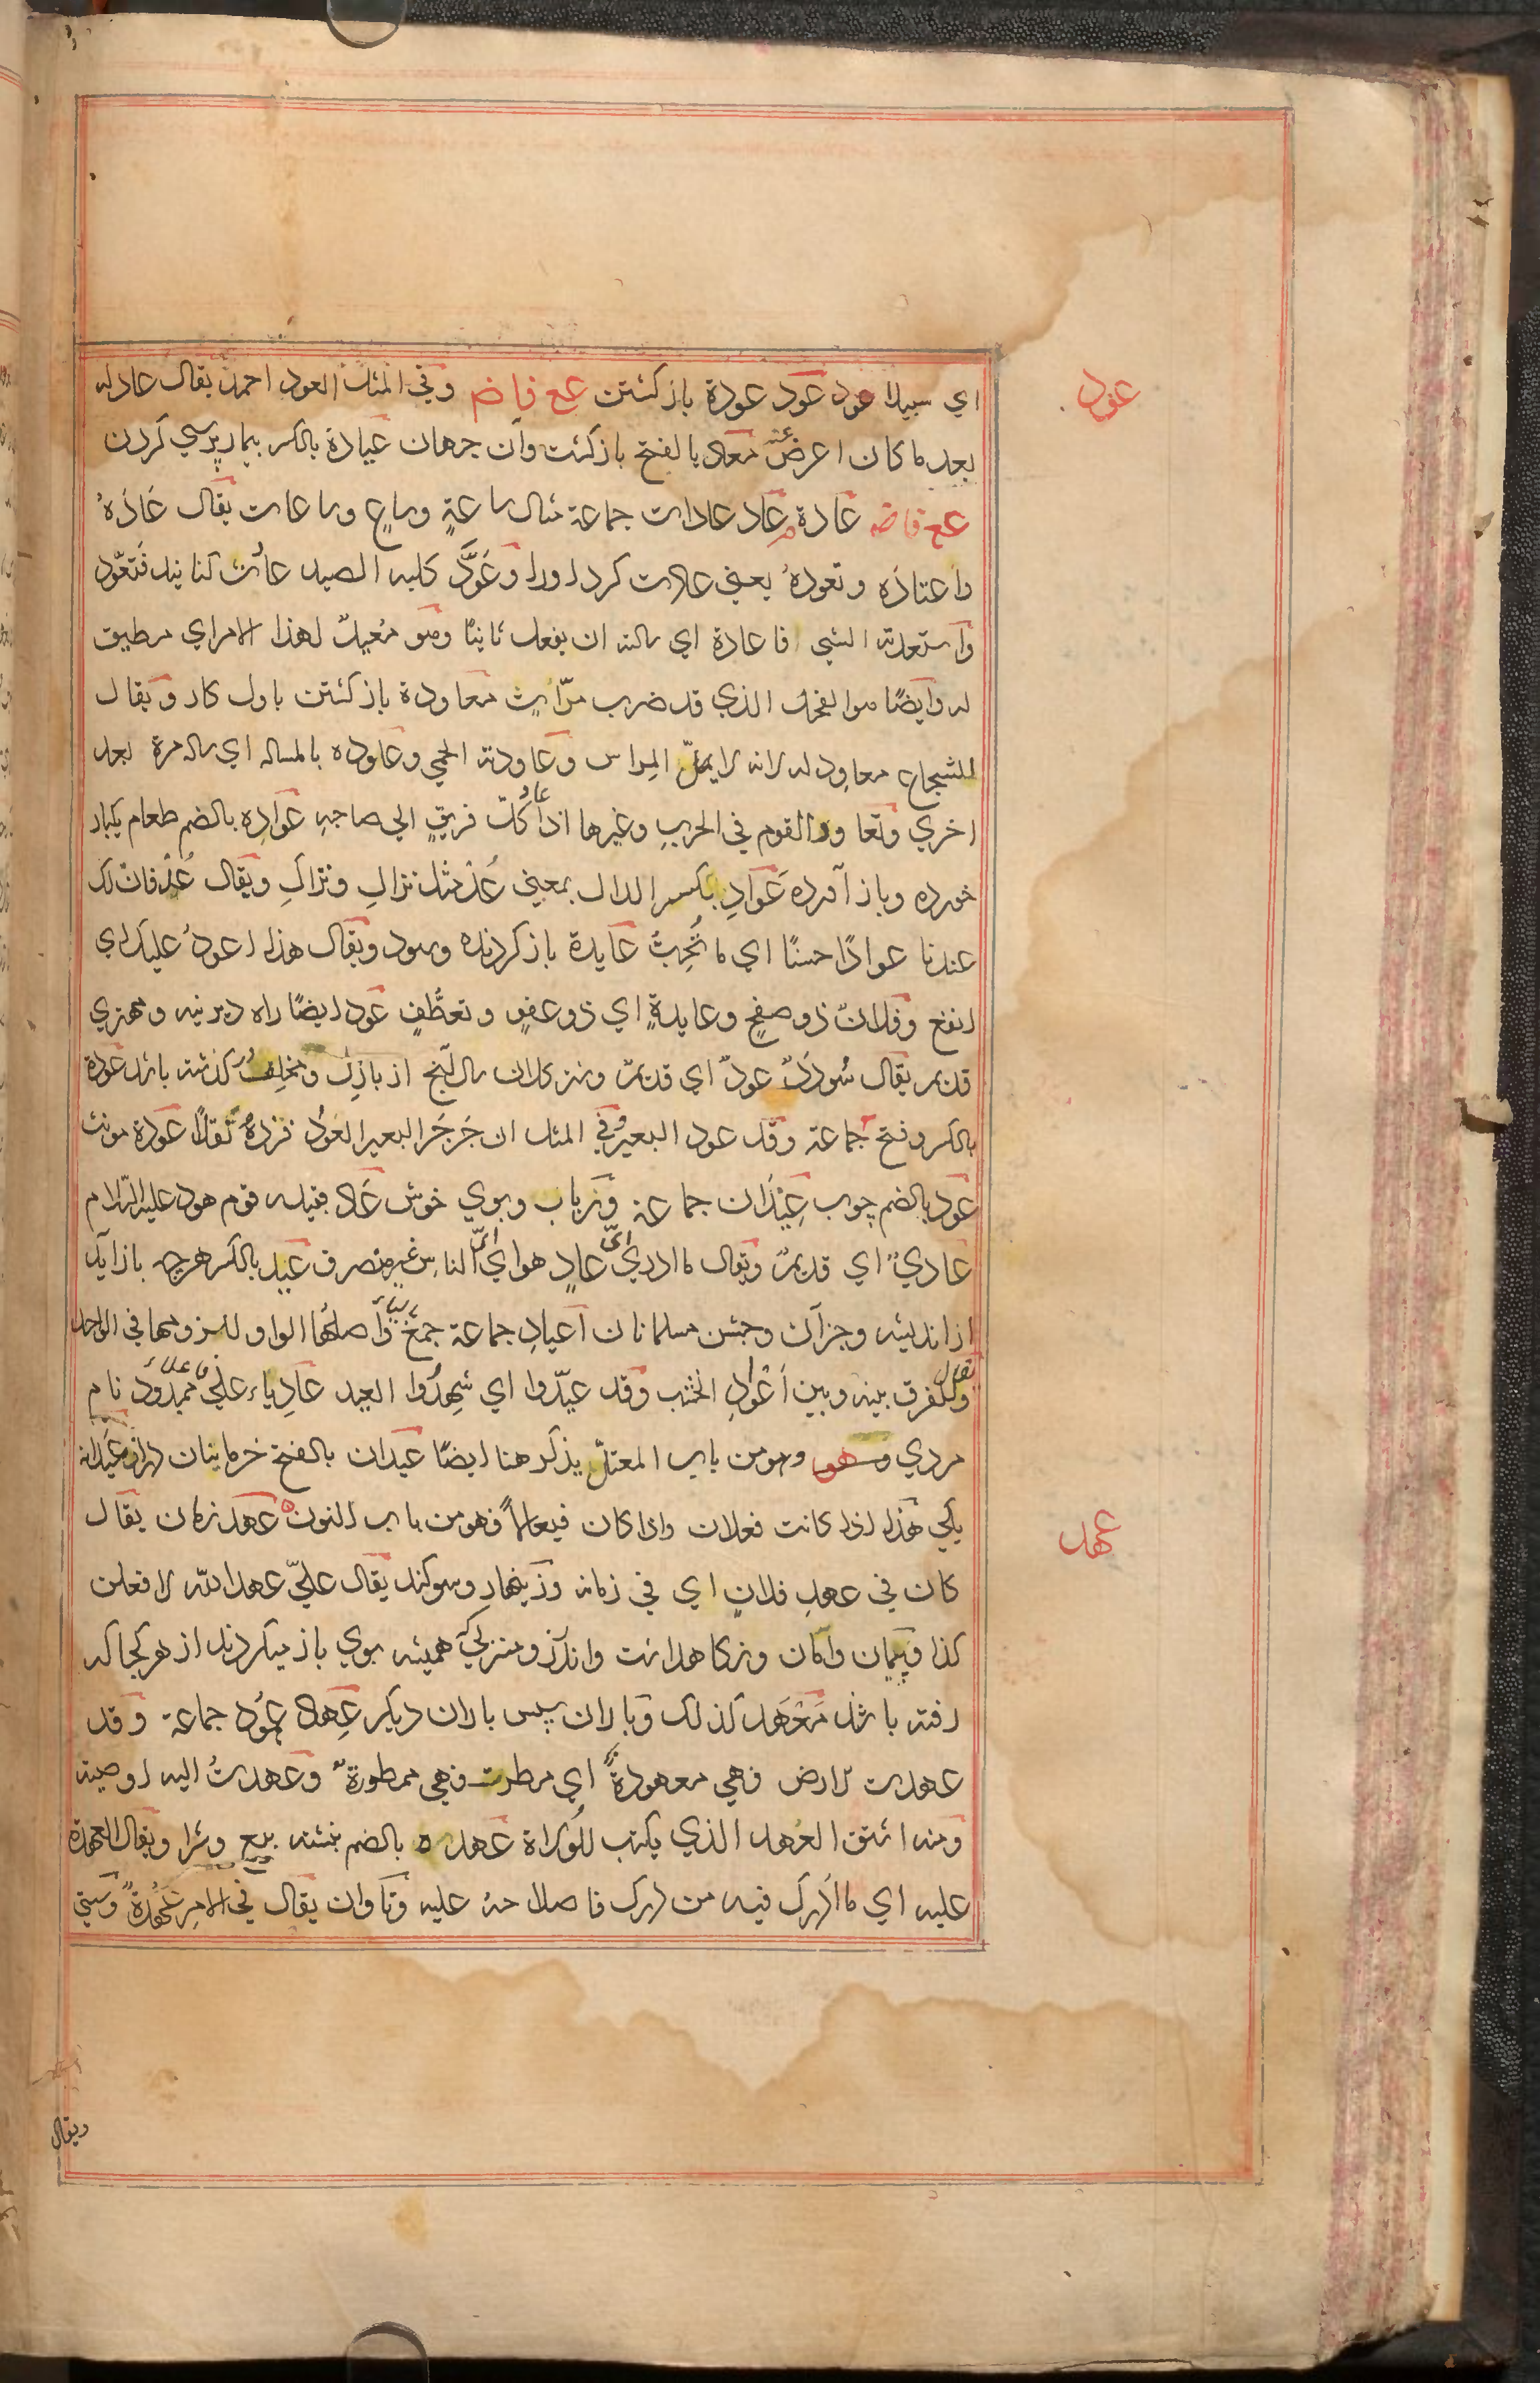 عود
اي سبيلا عود عَود عودة باز كشتن عع فاضم وفي المثل العود احمد يقال عاد له
بعد ما كان اعرض عنه مَعاد بالفتح باز كشت وآن جرهان عيادة بالكسر بيمار پرسي كردن
عع فاضم عادة عاد عادات جماعة مثال ساعةٍ وساعٍ وساعات يقال عَادَهُ
واعتادَه وتعودهُ يعني عادت كرد اورا وعَوَّد كلبه الصيد فتعوّد
واستعدته الشي فاعادة اي سالته ان يفعل ثانيًا وهو مُعيدٌ لهذا الامر اي مطيق
له وايضًا هو الفحل الذي قد ضرب مرّاتٍ معاودة باز كشتن باول كار ويقال
للشجاع معاود له لانه لا يملّ المِراس وعاودته الحمي وعاوده بالمساله اي ساله مرة بعد
اخري وتعاود القوم في الحربِ وغيرها اذا عاد كلّ فريقٍ الي صاحبِهِ عوادِه بالضم طعام يكبار
خورده وباز آورده عَوَادِ بكسر الدال بمعني عُدْ مثل نزالِ وتراكِ ويقال عُدْ فان لك
عندنا عوادًا حسنًا اي ما تُحِبُّ عايدة باز كردنده وسود ويقال هذا اعودُ عليك اي
انفع وفلانٌ ذو صفحٍ وعايدةٍ اي ذو عفوٍ وتعطُّفٍ عَود ايضًا راه ديرنيه ومهتري
قديم يقال سُوددٌ عَودٌ اي قديمٌ ونيز كلان سال آنچ از بازل ومخلفُ كذشته باشد عودة
بالكسر وفتح جماعة وقد عود البعير وفي المثل ان جَرجَرَ البعير العَودُ فزدهُ ثقلًا عودة مونث
عُود بالضم چوب عِيْدَان جماعة وزياب وبوي خوش عَاد قبيله قوم هود عليه السّلام
عاديٌّ اي قديمٌ ويقال ما ادري ايّ عادٍ هو اي ايّ الناس غير منصرف عيد بالكسر هرچه باز آيد
از انديشه وجزآن وجشن مسلمانان اعياد جماعة جمعٌ بياءٍ واصلُها الواو للزومها في الواحد
وللفرق بينه وبين اَعْوادِ الخشب وقد عيّدوا اي شَهِدُوا العيد عَادِياء علي ممدُود نام
مردي وهو ومومن باب المعتلّ يذكر هنا ايضًا عيدان بالفتح خرما بنان دراز عَيدانة
يكي هَذا اذا كانت فعلان واذا كان فيعالًا فهو من باب النون عهد زمان يقال
عهد
كان في عهدِ فلانٍ اي في زمانه وزينهار وسوكند يقال عليّ عهد الله لا فعلن
كذا وپيمان وامان ونكاهداشت واندرز ومنزلي كه هميشه بوي باز ميكردند از هر كجا كه
رفته باشد مَعْهَد كذلك وباران پس باران ديكر عِهاد عُهود جماعة وقد
عهدت الارض فهي معهودةٌ اي مطرت فهي ممطورةٌ وعهدتُ اليه اوصيته
ومنه اشتق العهد الذي يكتب للوُلاة عُهدة بالضم نبشته بيع وشرا ويقال العهدة
عليه اي ما ادرك فيه من درك فاصلاحهُ عليه وتاوان يقال في الامر عُهْدةٌ وسستي
ويقال